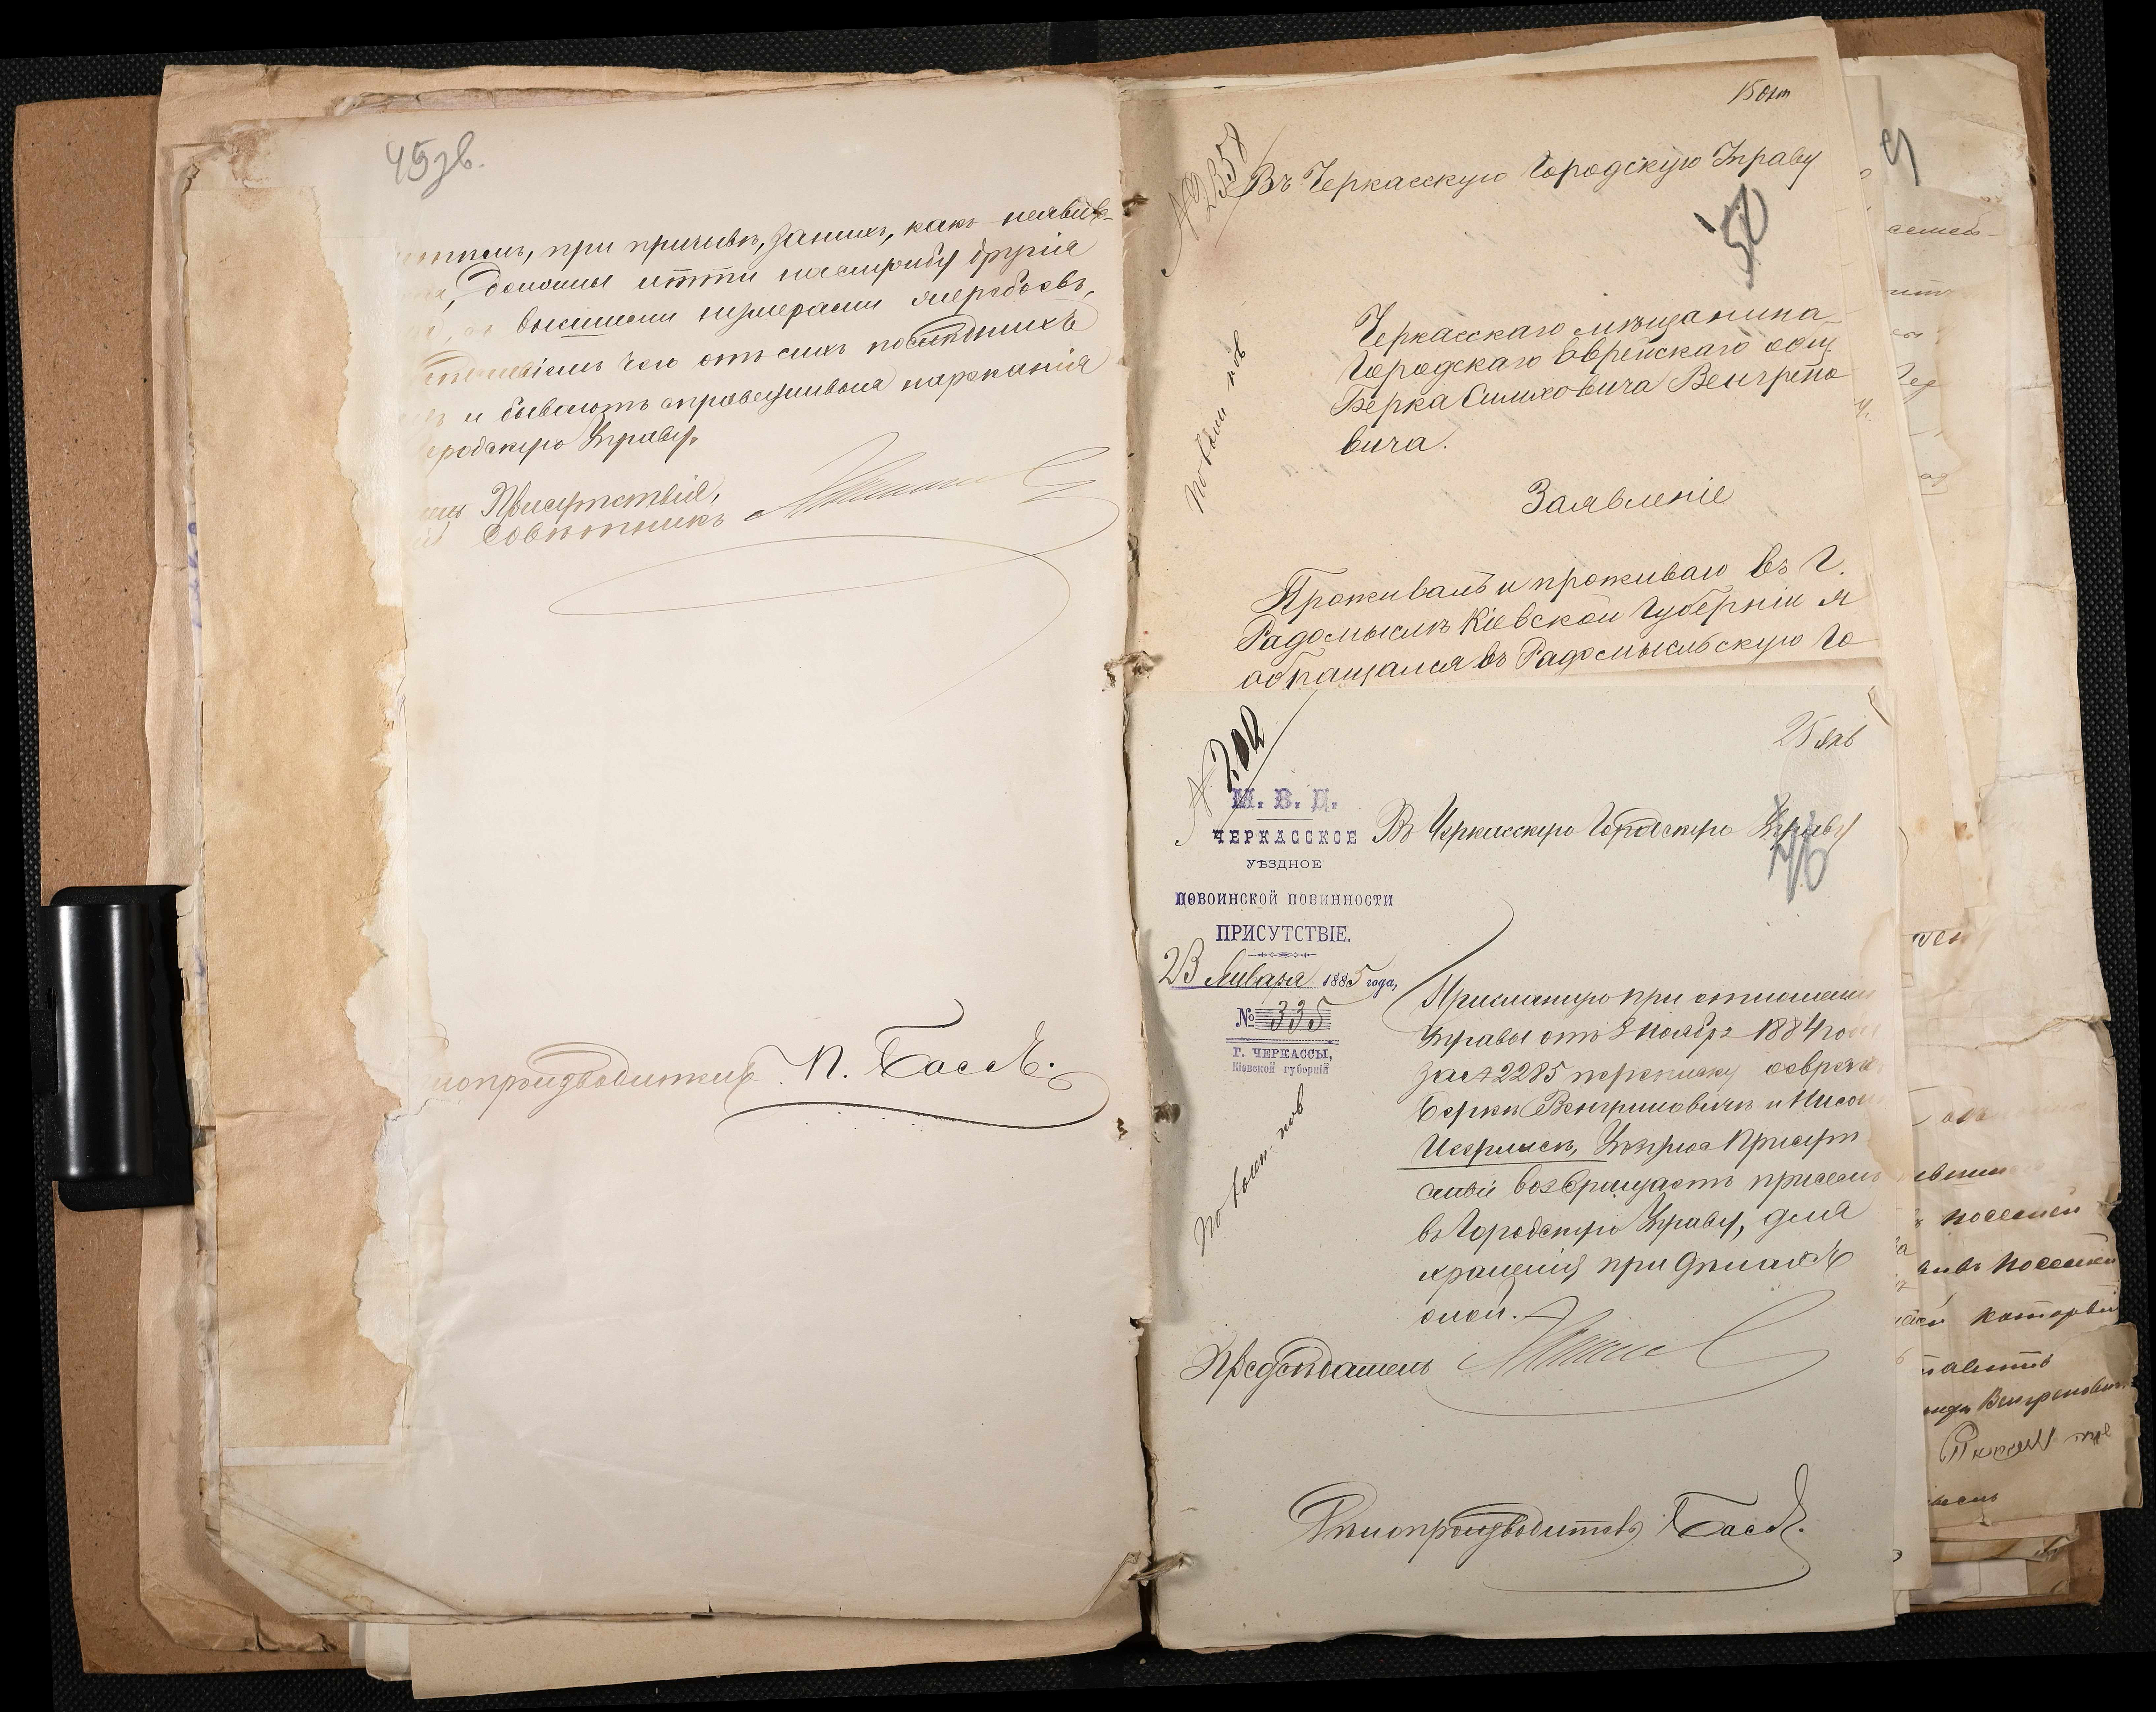 45зв.
при призывѣ, за нихъ, какъ неявив-
должны итти на службу другія
высшими нумерами жеребьевъ,
чего отъ сихъ послѣднихъ
и бываютъ справедливыя нарканія
Городскую Управу.
Присутствія,
Совѣтникъ
П. Бассъ.
15 окт
№ 2358
Въ Черкасскую Городскую Управу
50
Черкасскаго мѣщанина
Городскаго Еврейскаго общ.
Берка Симховича Венгрено
вича.
по воен пов
Заявленіе
Проживалъ и проживаю въ Г.
Радомыслѣ Кіевской Губерніи я
обращался въ Радомысльскую Го
№ 202
25 янв
М. В. Д.
ЧЕРКАССКОЕ
УѢЗДНОЕ
ПО ВОИНСКОЙ ПОВИННОСТИ
ПРИСУТСТВІЕ.
23 Января 1885 года,
№ 335
Г. ЧЕРКАССЫ,
Кіевской губерніи
по воен. пов
Въ Черкасскую Городскую Управу
46
Присланную при отношеніи
Управы отъ 8 Ноября 1884 года
за № 2285 переписку о евреяхъ
Беркѣ Венгриновичѣ и
Уѣздное Присут
ствіе возвращаетъ при семъ
въ Городскую Управу, для
храненія при дѣлахъ
оной.
Предсѣдатель
Дѣлопроизводитель Бассъ.
семей
который
Венгренович